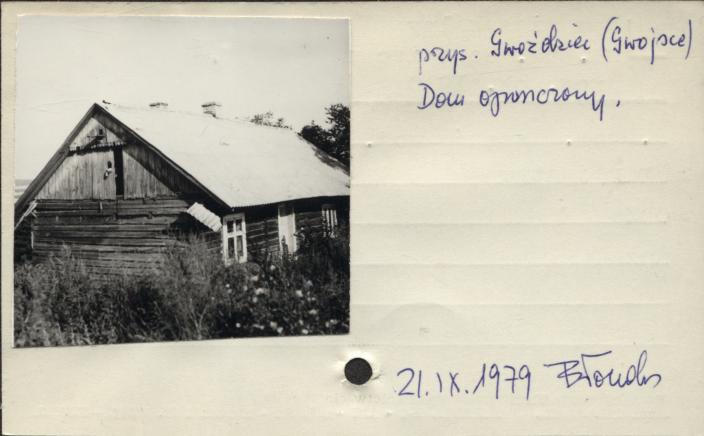 przys. Gwoździec (Gwojsce)
Dom opuszczony.
21.IX.1979